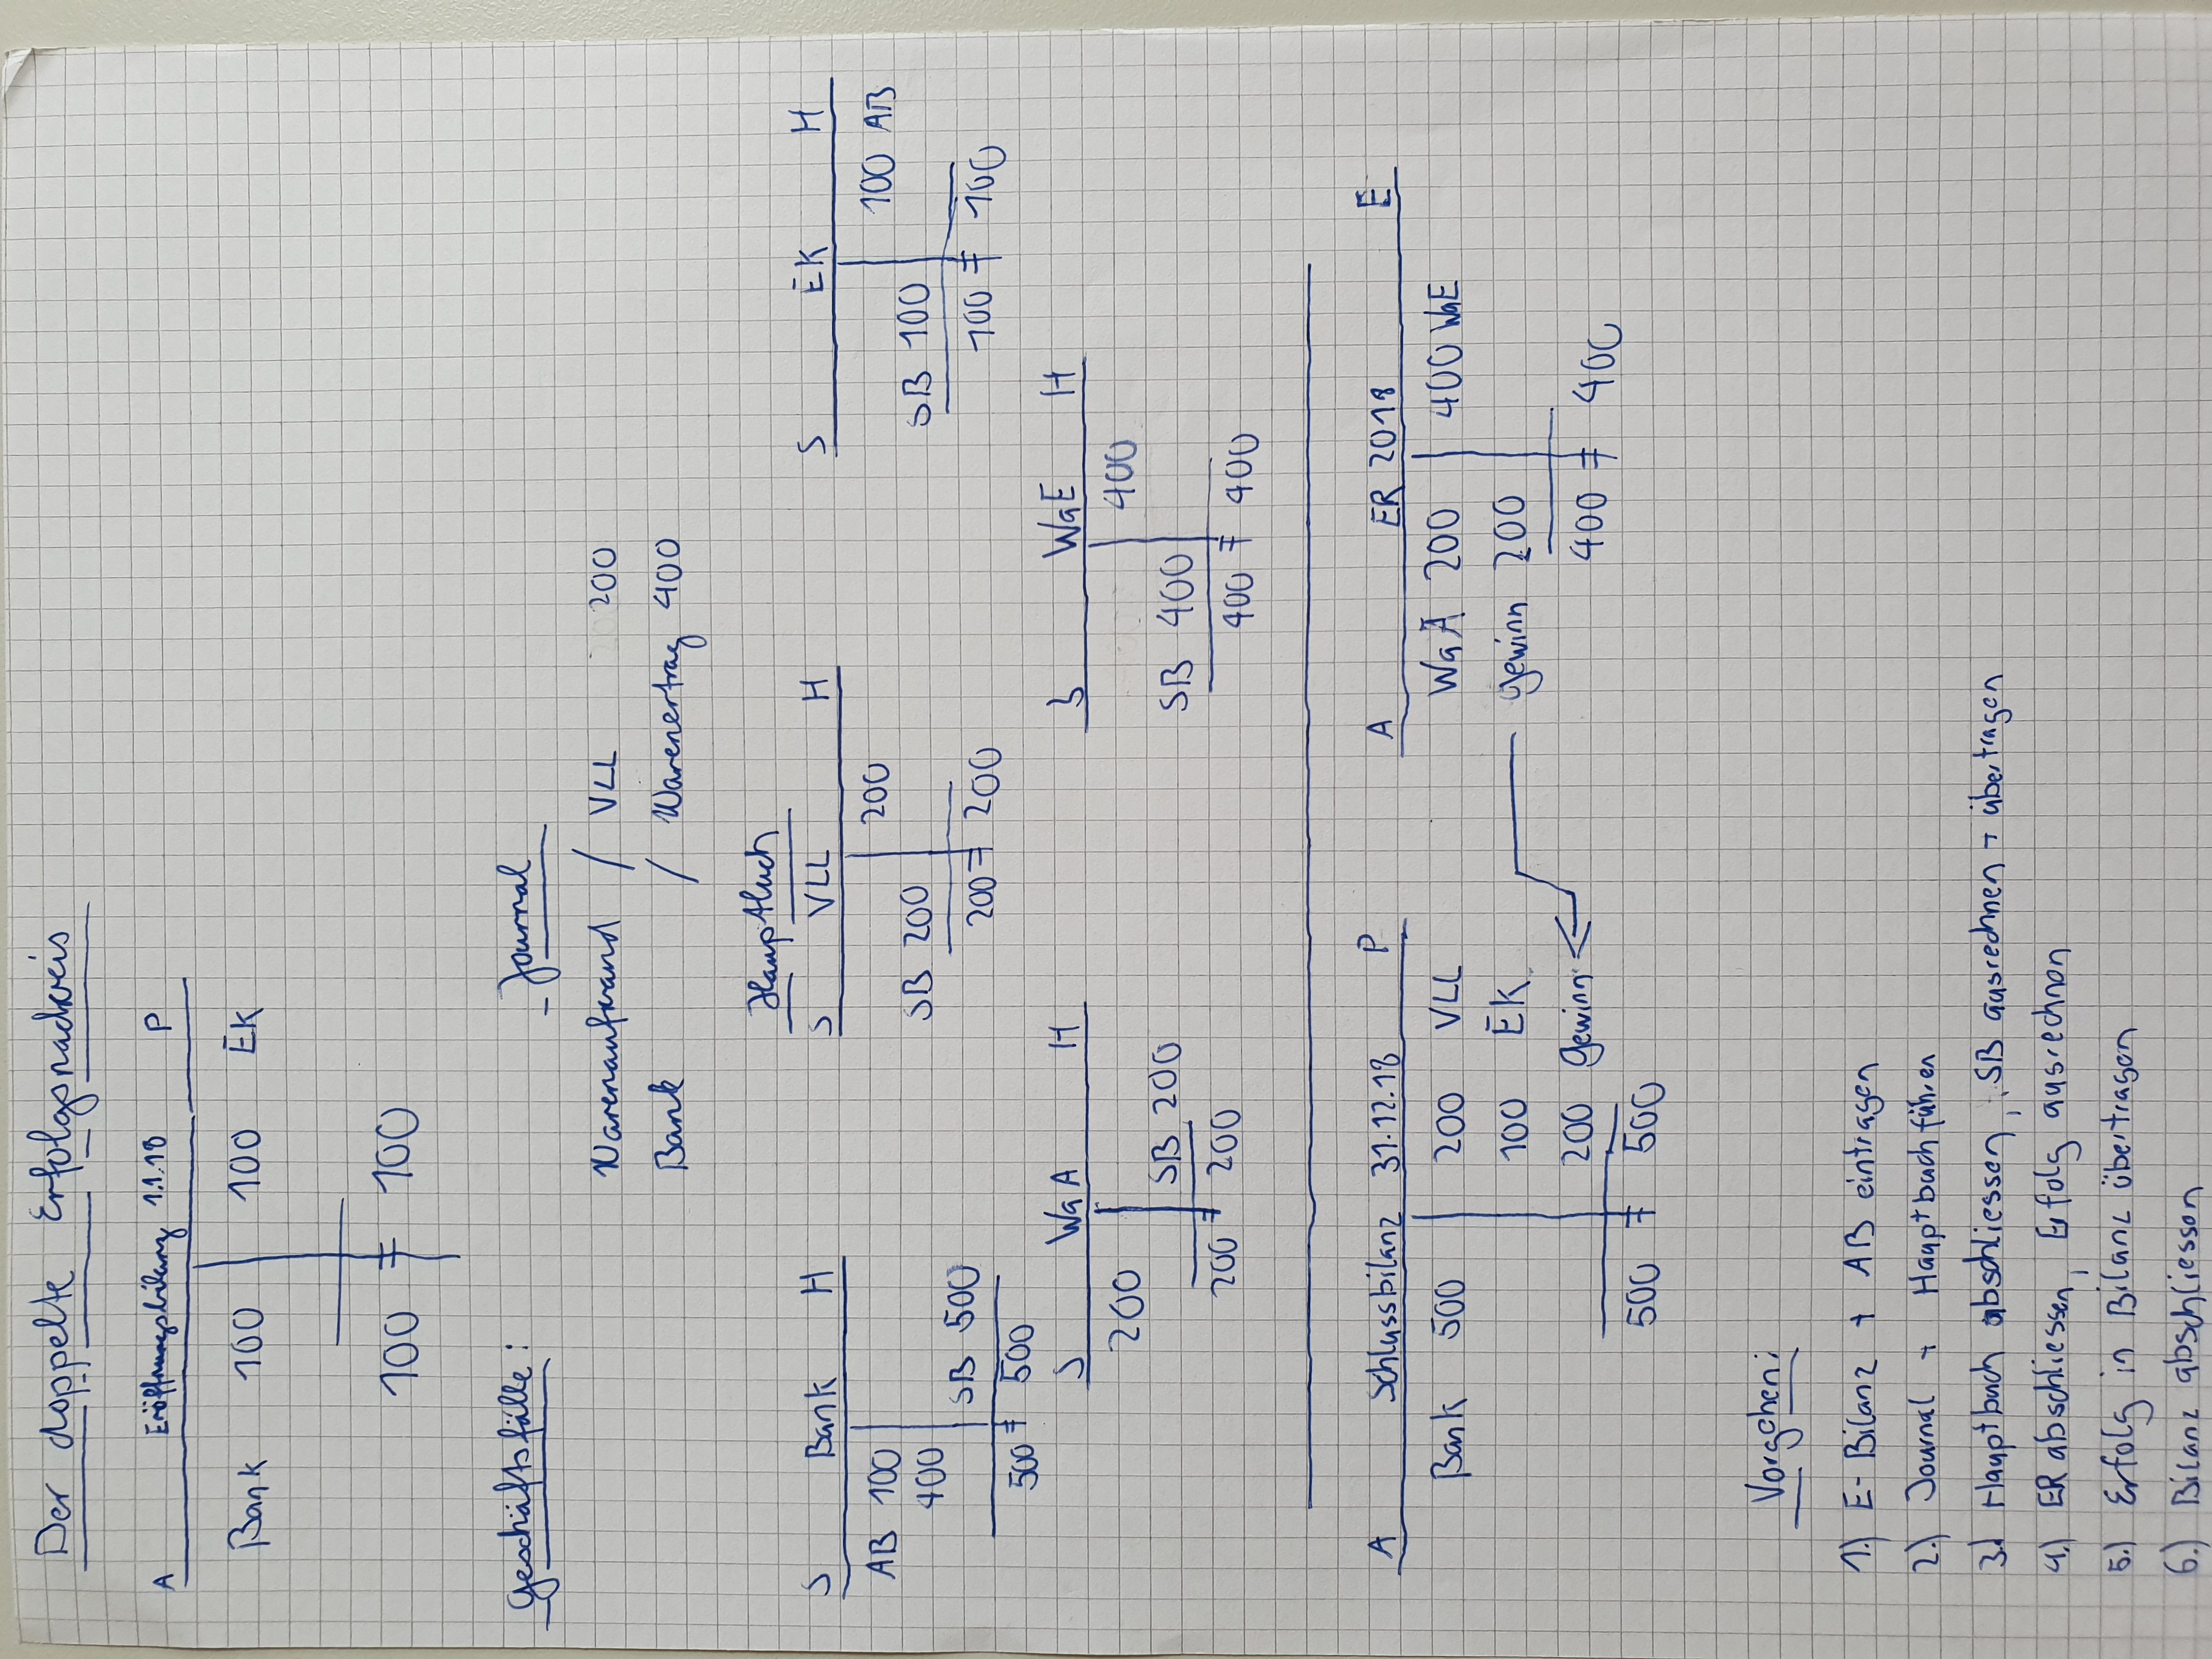 Der doppelte Erfolgsnachweis
A Eröffnungsbilanz 1.1.18 P
Bank 100 100 EK
100 = 100
Geschäftsfälle: Journal
Warenaufwand / VLL 200
Bank / Warenertrag 400
Hauptbuch
S Bank H S VLL H S EK H
AB 100 200 100 AB
400 SB 200 SB 100
SB 500 200 = 200 100 = 100
500 = 500
S WaA H S WaE H
200 400
SB 200 SB 400
200 = 200 400 = 400
A Schlussbilanz 31.12.18 P A ER 2018 E
Bank 500 200 VLL WaA 200 400 WaE
100 EK Gewinn 200
200 Gewinn 400 = 400
500 = 500
Vorgehen:
1.) E-Bilanz + AB eintragen
2.) Journal + Hauptbuch führen
3.) Hauptbuch abschliessen, SB ausrechnen + übertragen
4.) ER abschliessen, Erfolg ausrechnen
5.) Erfolg in Bilanz übertragen
6.) Bilanz abschliessen